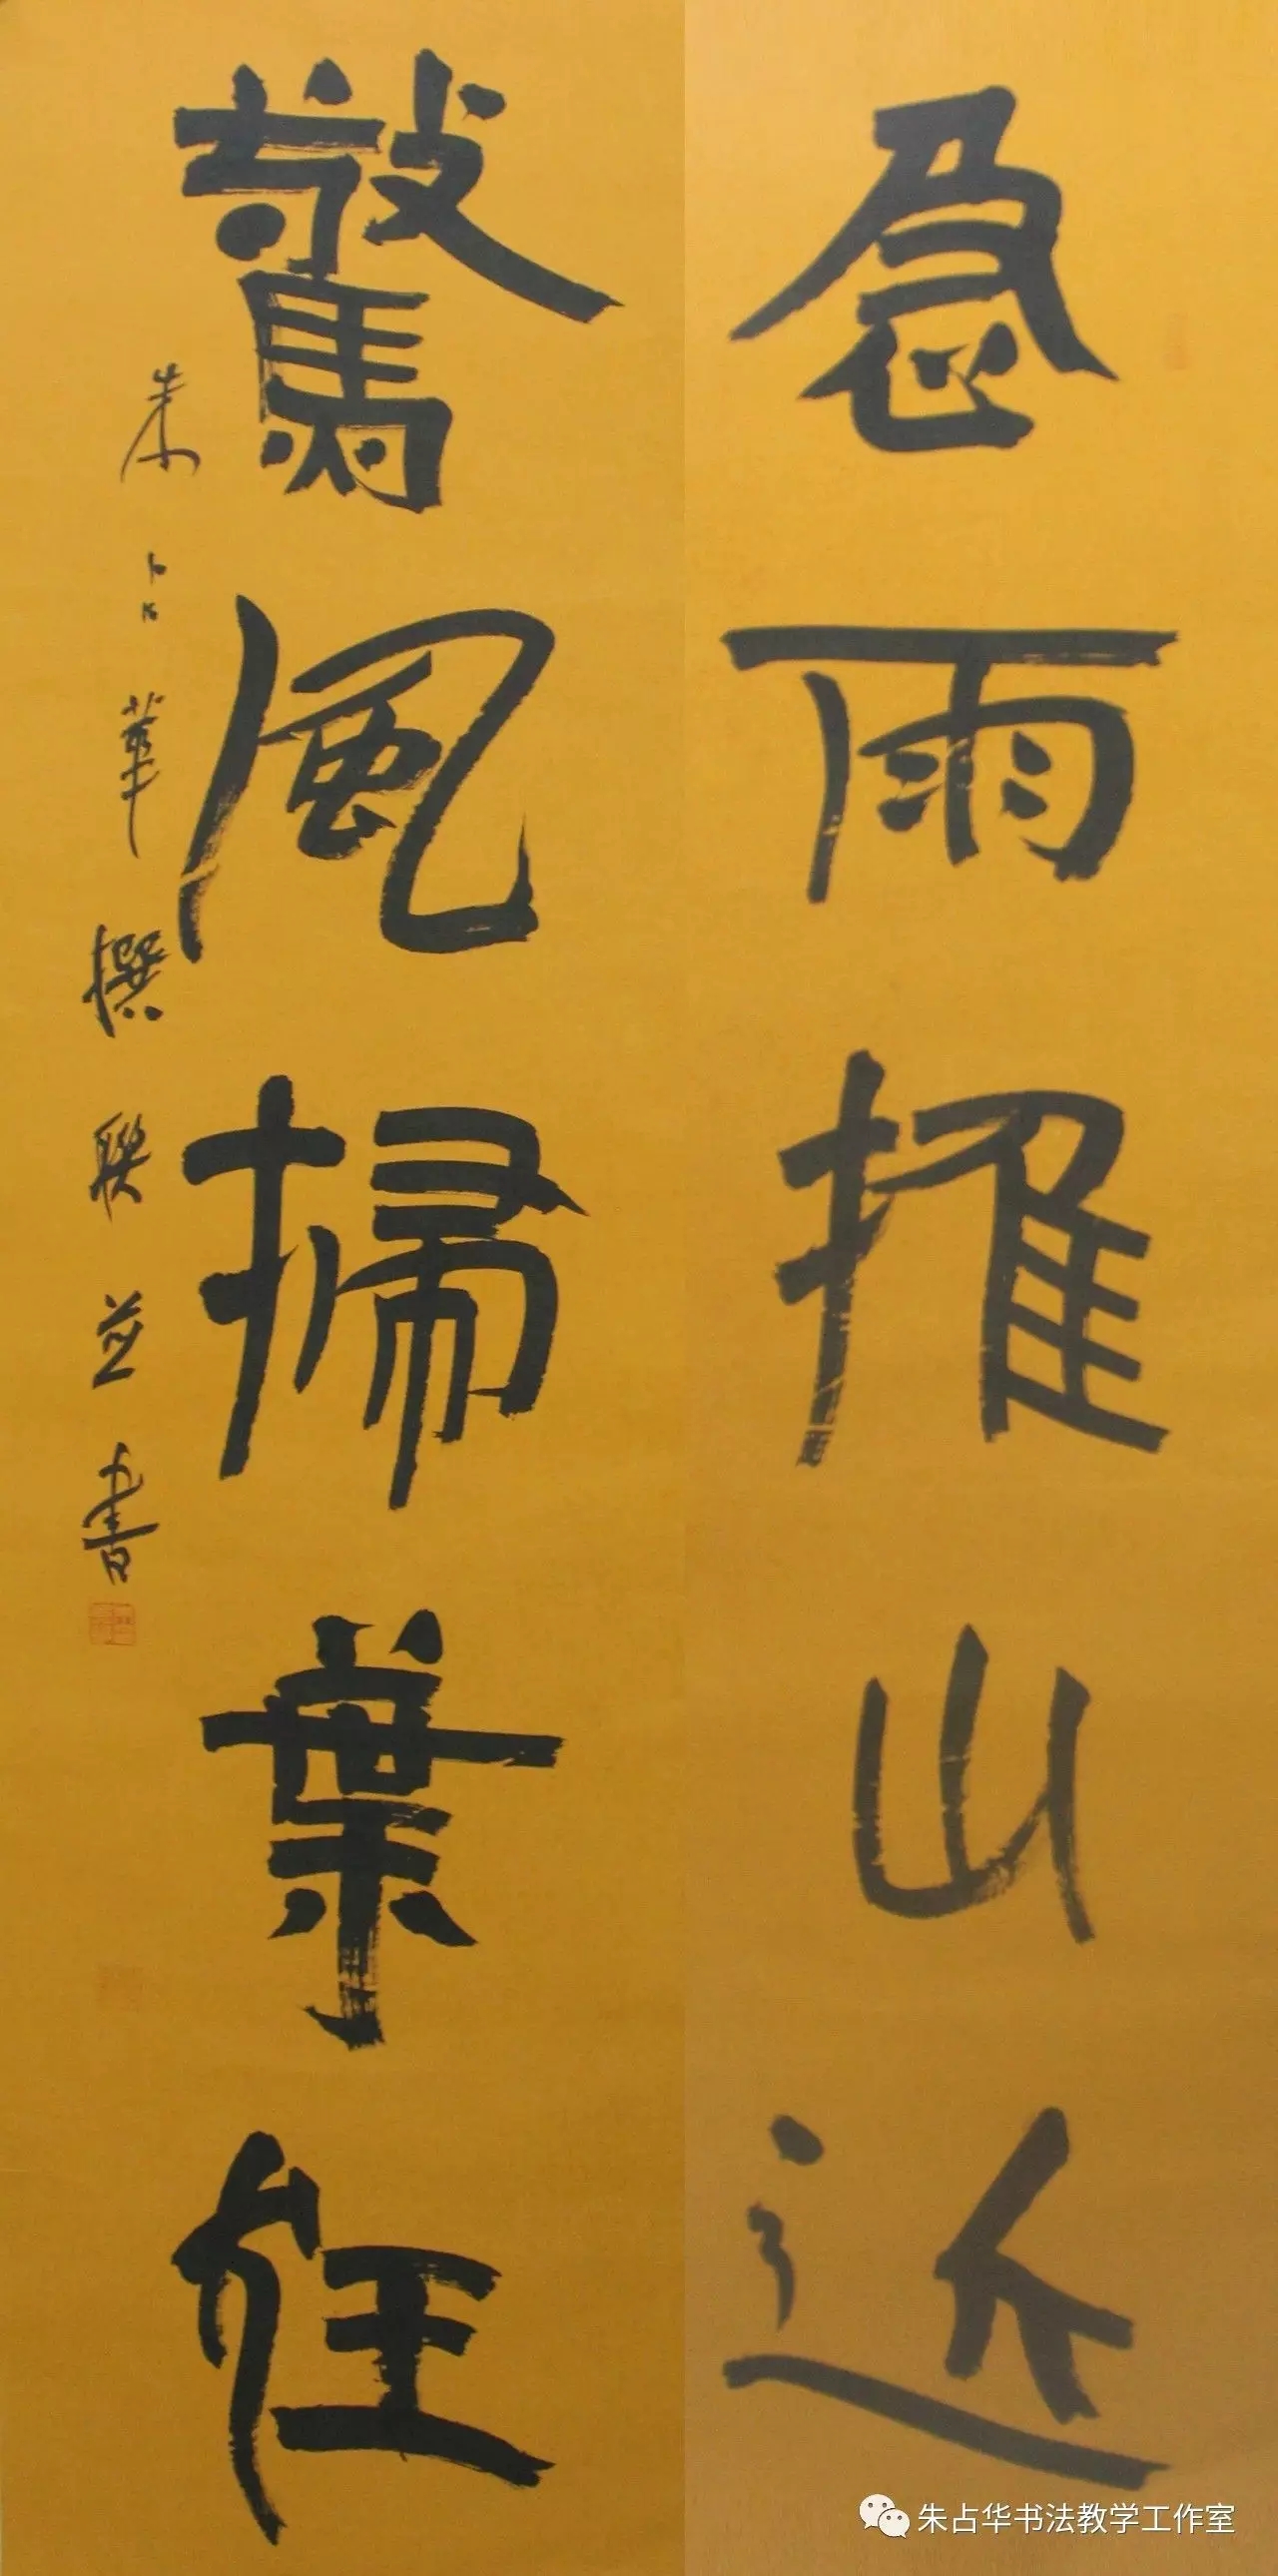 急雨推山近
驚風掃葉狂
朱占華撰聯並書
朱占华书法教学工作室